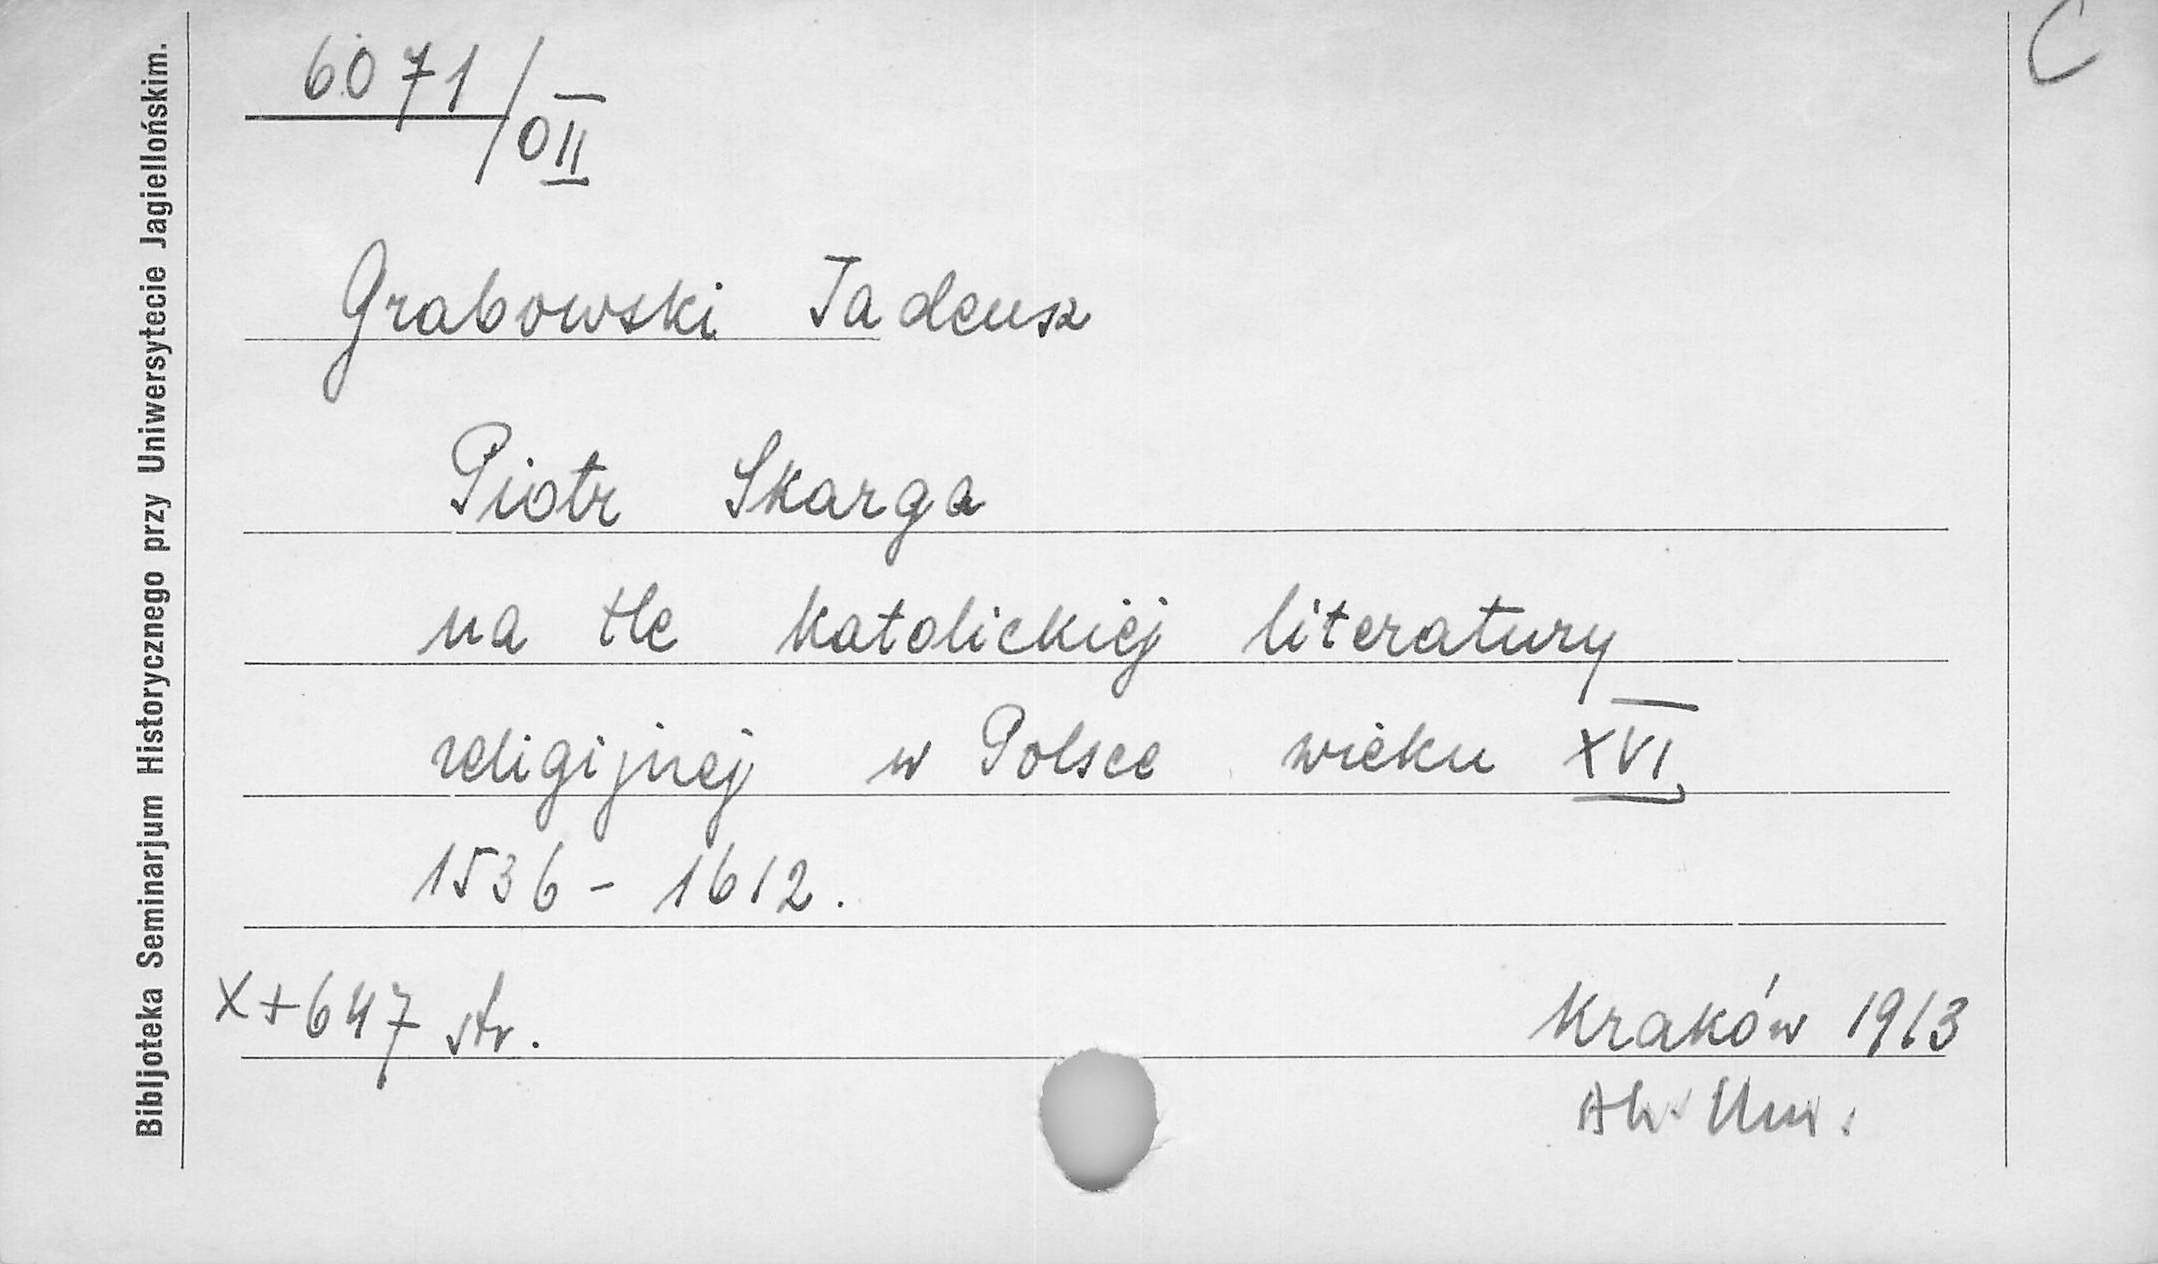 C
6071/OII
Grabowski Tadeusz
Piotr Skarga
na tle katolickiej literatury
religijnej w Polsce wieku XVI
1536 - 1612.
X+647 str.
Kraków 1913
Ak. Um.
Bibljoteka Seminarjum Historycznego przy Uniwersytecie Jagiellońskim.